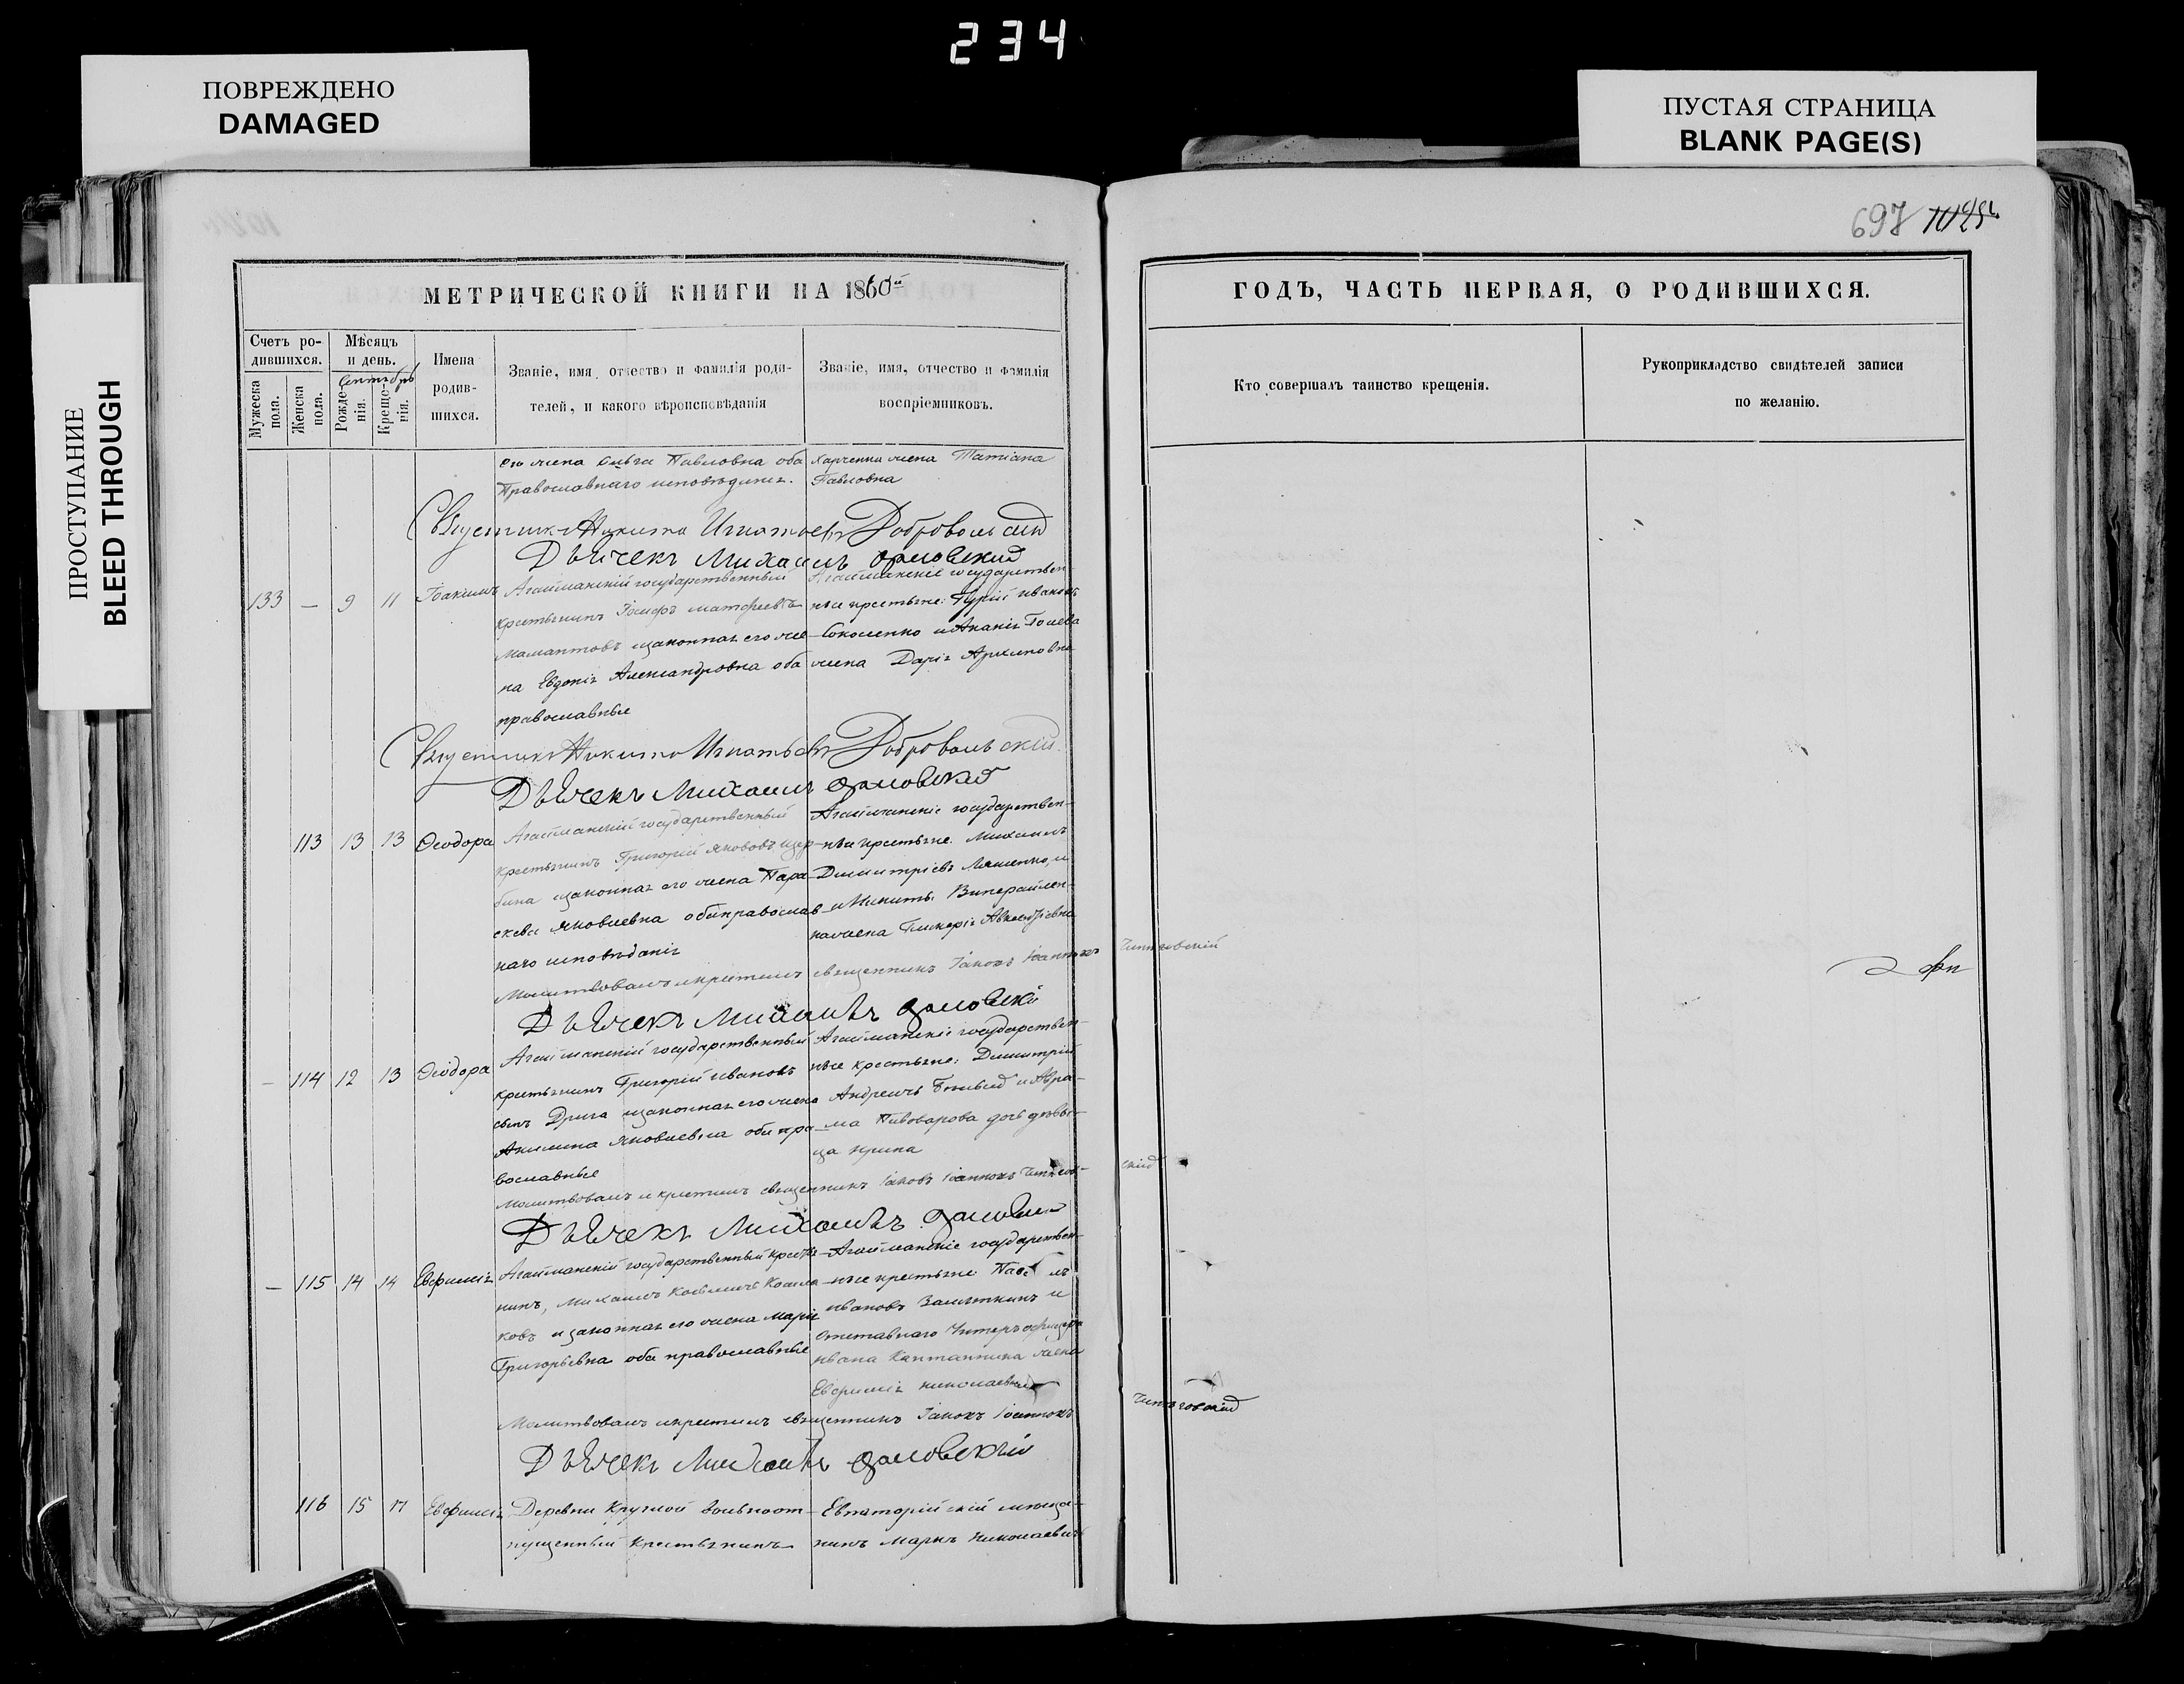 234
ПОВРЕЖДЕНО
DAMAGED
ПУСТАЯ СТРАНИЦА
BLANK PAGE(S)
ПРОСТУПАНИЕ
BLEED THROUGH
697
МЕТРИЧЕСКОЙ КНИГИ НА 1860й
Счетъ ро-
дившихся.
Мужеска пола.
Женска пола.
Мѣсяцъ
и день.
Сентябрь
Рожде-
нія.
Креще-
нія.
Имена
родив-
шихся.
Званіе, имя, отчество и фамилія роди-
телей, и какого вѣроисповѣданія
Званіе, имя, отчество и фамилія
воспріемниковъ.
его жена Ольга Павловна оба
Православнаго исповѣданія.
Харченки жена Татіана
Павловна
Священникъ Никита Игнатьевъ Добровольскій
Дьячекъ Михаилъ Орловскій
133 — 9 11 Іоакимъ
Агайманскій государственный
крестьянинъ Іосифъ Матфеевъ
Мамонтовъ и законная его же-
на Евдокія Александровна оба
православные
Агайманскіе государствен-
ные крестьяне: Гурій Ивановъ
Соколенко и Ананія Голева
жена Дарія Архиповна
Священникъ Никита Игнатьевъ Добровольскій
Дьячекъ Михаилъ Орловскій
113 13 13 Ѳеодора
Агайманскій государственный
крестьянинъ Григорій Якововъ
законная его жена Пара-
скева Яковлевна оба православ-
наго исповѣданія
Агайманскіе государствен-
ные крестьяне: Михаилъ
Димитріевъ Ляшенко, и
Никиты
жена Гликерія
Молитвовалъ и крестилъ священникъ Іаковъ Іоанновъ
Дьячекъ Михаилъ Орловскій
— 114 12 13 Ѳеодора
Агайманскій государственный
крестьянинъ Григорій Ивановъ
сынъ Дрига и законная его жена
Акилина Яковлевна оба пра-
вославные
Агайманскіе государствен-
ные крестьяне: Димитрій
Андреичъ и Авра-
ма Пивоварова дочь дѣви-
ца Ирина
Молитвовалъ и крестилъ священникъ Іаковъ Іоанновъ
скій
Дьячекъ Михаилъ Орловскій
— 115 14 14 Евфимія
Агайманскій государственный крестья-
нинъ, Михаилъ Козьмичъ
ковъ и законная его жена Марія
Григорьевна оба православные
Агайманскіе государствен-
ные крестьяне Павелъ
Ивановъ Замяткинъ и
Отставнаго Унтеръ офицера
Ивана жена
Евфимія Николаевна
Молитвовалъ и крестилъ священникъ Іаковъ Іоанновъ
Дьячекъ Михаилъ Орловскій
116 15 17 Евфимія
Деревни Круглой вольноот-
пущенный крестьянинъ
Евпаторійскій мѣща-
нинъ Маркъ Николаевичъ
ГОДЪ, ЧАСТЬ ПЕРВАЯ, О РОДИВШИХСЯ.
Кто совершалъ таинство крещенія.
Рукоприкладство свидѣтелей записи
по желанію.